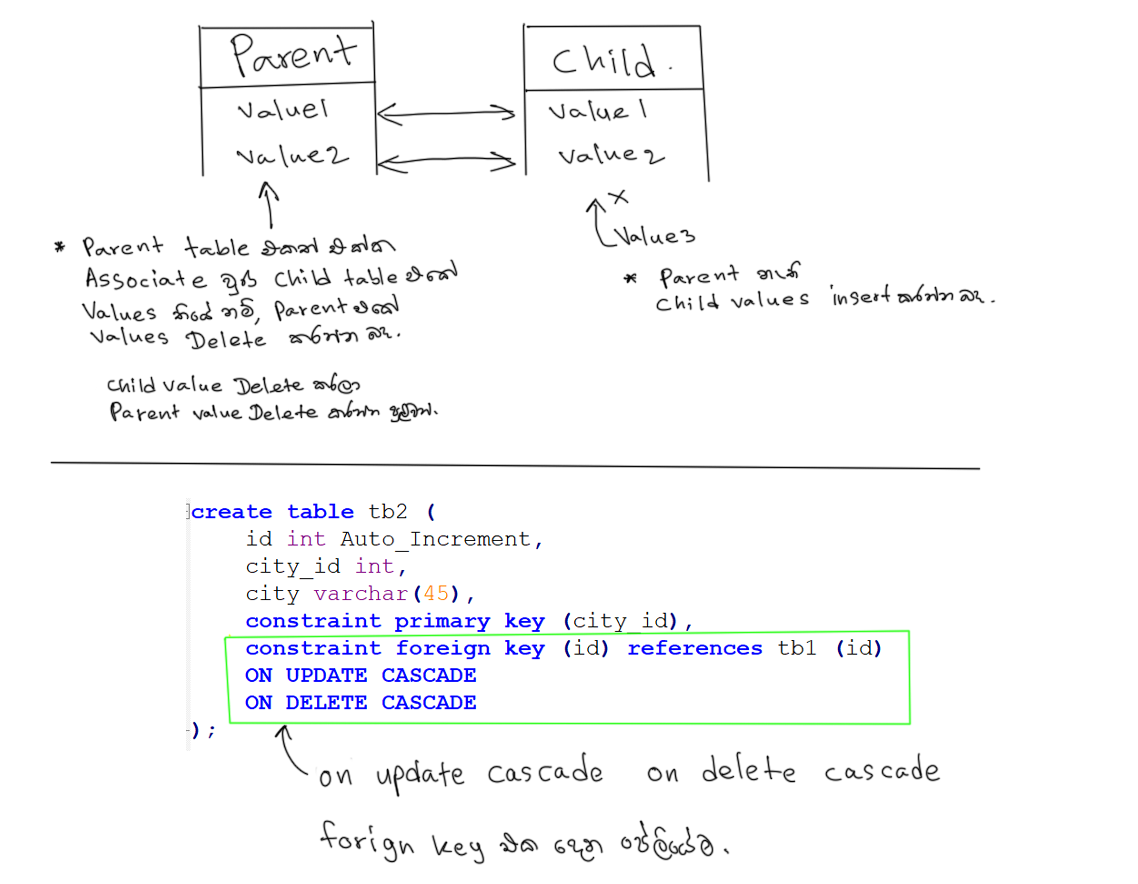 Parent
Child.
value1
value1
value2
value2
x
Value3
* Parent table එකත් එක්ක
Associate වුන Child table එකේ
Values තියේ නම්, Parent එකේ
values Delete කරන්න බෑ.
* Parent නැති
Child values insert කරන්න බෑ.
Child value Delete කරලා
Parent value Delete කරන්න පුළුවන්.
create table tb2 (
id int Auto_Increment,
city_id int,
city varchar(45),
constraint primary key (city_id),
constraint foreign key (id) references tb1 (id)
ON UPDATE CASCADE
ON DELETE CASCADE
);
on update cascade on delete cascade
forign key එක දෙන පේලියේම.